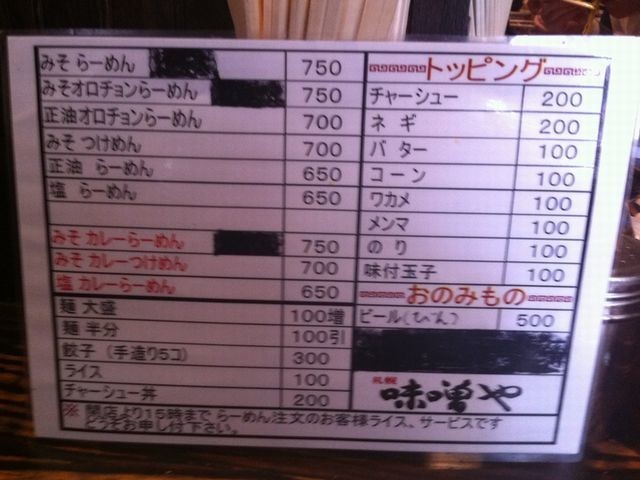 みそ らーめん 750
みそオロチョンらーめん 750
正油オロチョンらーめん 700
みそ つけめん 700
正油 らーめん 650
塩 らーめん 650
みそ カレーらーめん 750
みそ カレーつけめん 700
塩 カレーらーめん 650
麺 大盛 100増
麺 半分 100引
餃子 (手造り5コ) 300
ライス 100
チャーシュー丼 200
トッピング
チャーシュー 200
ネギ 200
バター 100
コーン 100
ワカメ 100
メンマ 100
のり 100
味付玉子 100
おのみもの
ビール(びん) 500
札幌
味噌や
※ 開店より15時まで らーめん注文のお客様ライス、サービスです
どうぞお申し付下さい。